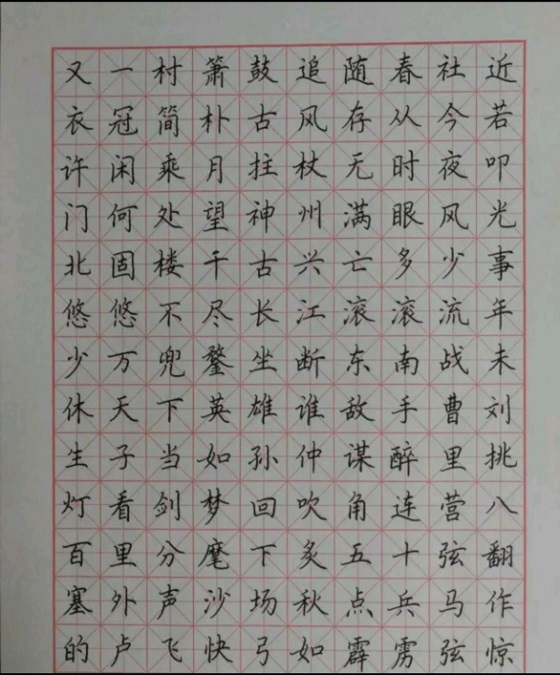 又一村箫鼓追随春社近
衣冠简朴古风存从今若
许闲乘月拄杖无时夜叩
门何处望神州满眼风光
北固楼千古兴亡多少事
悠悠不尽长江滚滚流年
少万兜鍪坐断东南战未
休天下英雄谁敌手曹刘
生子当如孙仲谋醉里挑
灯看剑梦回吹角连营八
百里分麾下炙五十弦翻
塞外声沙场秋点兵马作
的卢飞快弓如霹雳弦惊